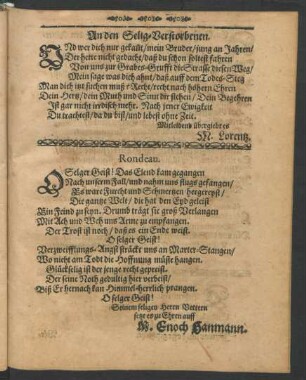 An den Selig-Verstorbenen.
UNd wer dich nur gekant/ mein Bruder/ jung an Jahren/
Der hette nicht gedacht/ daß du schon soltest fahren
Von uns zur Grabes-Grufft die Strasse diesen Weg/
Mein sage was dich ahnt/ daß auff dem Todes-Steg
Man dich itzt suchen muß? Recht/ recht nach höhern Ehren
Dein Hertz/ dein Muth und Sinn dir stehen/ Dein Begehren
Ist gar nicht irrdisch mehr. Nach jener Ewigkeit
Du trachtest/ da du bist/ und lebest ohne Zeit.
Mitleidend übergiebt es
M. Lorentz.
Rondeau.
O Selger Geist! Das Elend kam gegangen
Nach unserm Fall/ und nahm uns flugs gefangen/
Es ware Furcht und Schmertzen hergereyst/
Die gantze Welt/ die hat den Eyd geleist
Ein Feind zu seyn. Drumb trägt sie groß Verlangen
Mit Ach und Weh uns Arme zu empfangen.
Der Trost ist noch/ daß es ein Ende weist.
O selger Geist!
Verzweifflungs-Angst strückt uns an Marter-Stangen/
Wo nicht am Todt die Hoffnung müste hangen.
Glückselig ist der jenge recht gepreist.
Der seine Noth gedultig hier verbeist/
Biß Er hernach kan Himmel-herrlich prangen.
O selger Geist!
Seinem seligen Herrn Vettern
setzt es zu Ehren auff
M. Enoch Hanmann.